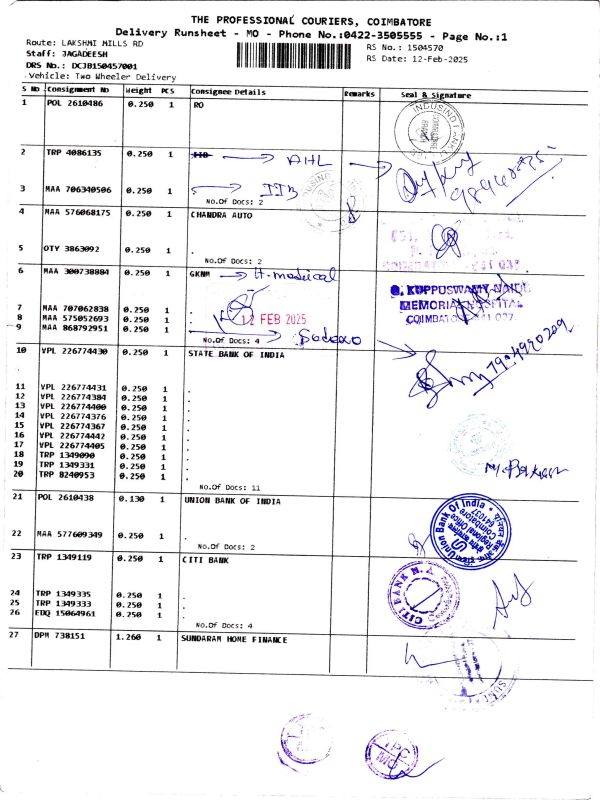 THE PROFESSIONAL COURIERS, COIMBATORE
Delivery Runsheet - MO - Phone No.:0422-3505555 - Page No.:1
Route: LAKSHMI MILLS RD
Staff: JAGADEESH
DRS No.: DCJB150457001
Vehicle: Two Wheeler Delivery
RS No.: 1504570
RS Date: 12-Feb-2025
S No Consignment No Weight PCS Consignee Details Remarks Seal & Signature
1 POL 2610486 0.250 1 RO
2 TRP 4086135 0.250 1 IIB AHL
3 MAA 706340506 0.250 1 . IIB
No.Of Docs: 2
4 MAA 576068175 0.250 1 CHANDRA AUTO
5 OTY 3863092 0.250 1 .
No.Of Docs: 2
6 MAA 300738884 0.250 1 GKNM H-medical
G. KUPPUSWAMY NAIDU
MEMORIAL HOSPITAL
7 MAA 707062838 0.250 1 .
8 MAA 575052693 0.250 1 .
12 FEB 2025
9 MAA 868792951 0.250 1 .
No.Of Docs: 4 Sodexo
10 VPL 226774430 0.250 1 STATE BANK OF INDIA
11 VPL 226774431 0.250 1 .
12 VPL 226774384 0.250 1 .
13 VPL 226774400 0.250 1 .
14 VPL 226774376 0.250 1 .
15 VPL 226774367 0.250 1 .
16 VPL 226774442 0.250 1 .
17 VPL 226774405 0.250 1 .
18 TRP 1349090 0.250 1 .
19 TRP 1349331 0.250 1 .
20 TRP 8240953 0.250 1 .
No.Of Docs: 11
21 POL 2610438 0.130 1 UNION BANK OF INDIA
Union Bank Of India
Regional Office
Coimbatore
641037
22 MAA 577609349 0.250 1 .
No.Of Docs: 2
23 TRP 1349119 0.250 1 CITI BANK
CITI BANK N.A
24 TRP 1349335 0.250 1 .
25 TRP 1349333 0.250 1 .
26 EDQ 15064961 0.250 1 .
No.Of Docs: 4
27 DPM 738151 1.260 1 SUNDARAM HOME FINANCE